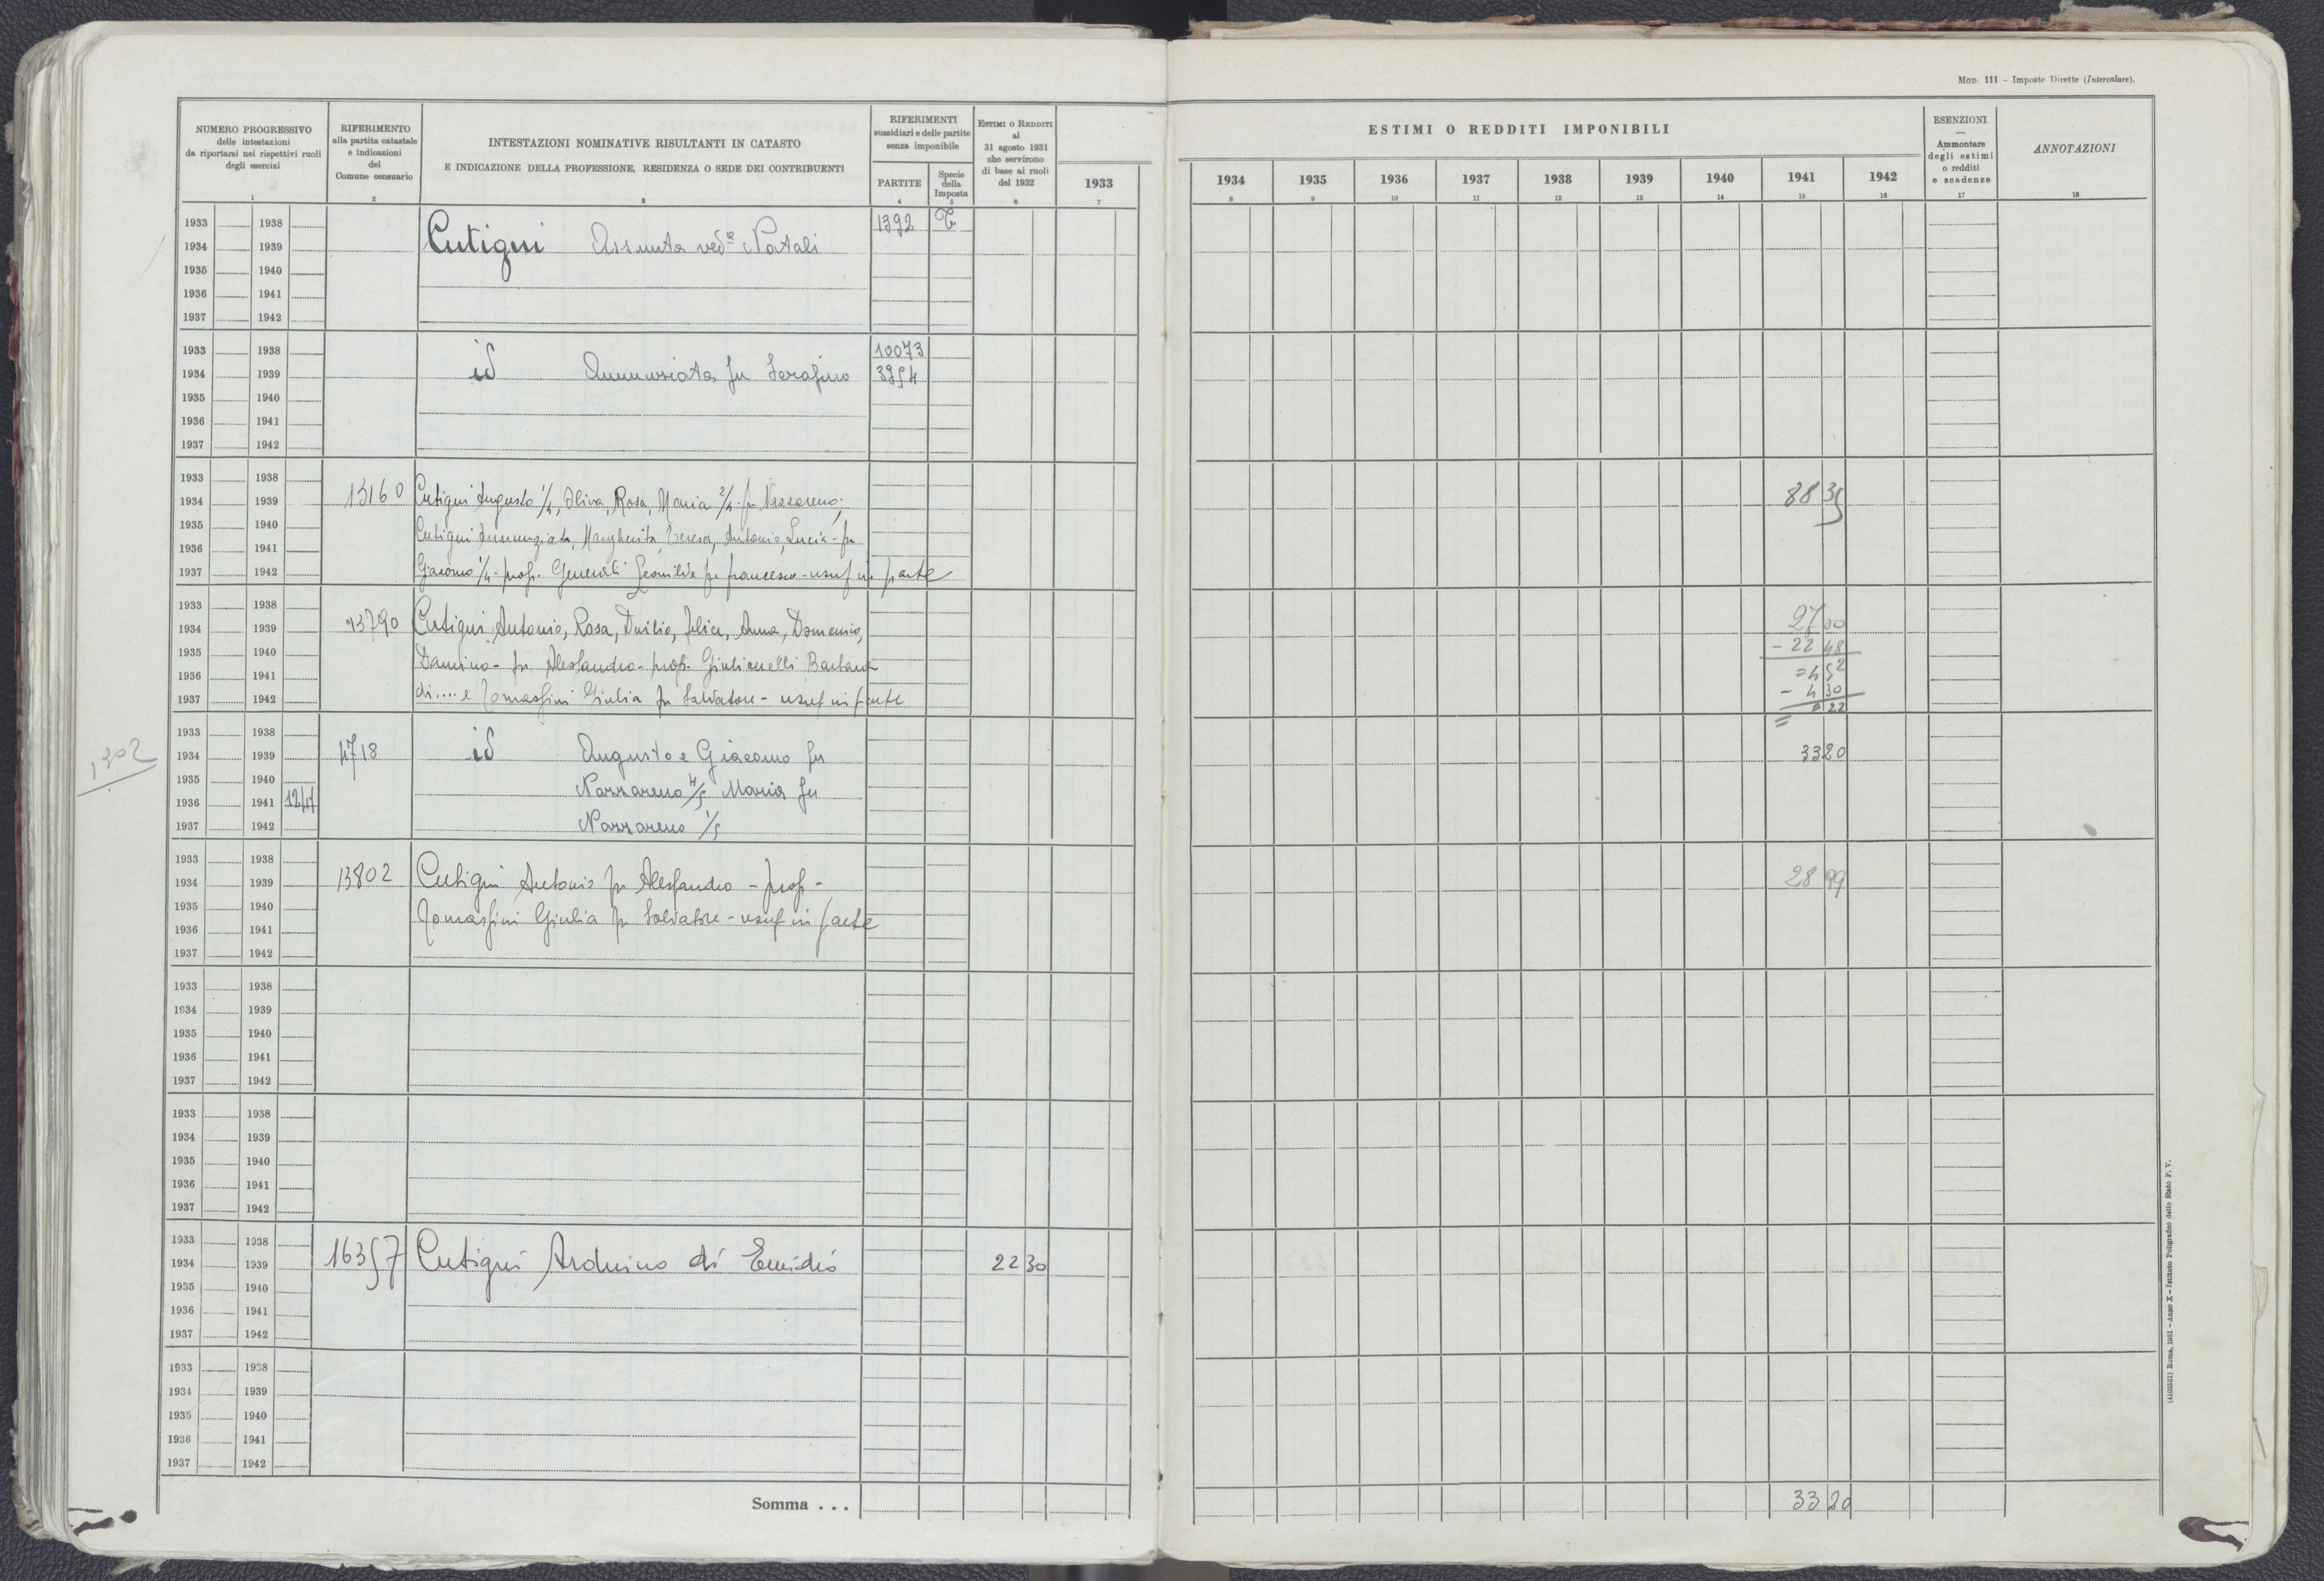 Mod. 111 - Imposte Dirette (Intercalare).
NUMERO PROGRESSIVO
delle intestazioni
da riportarsi nei rispettivi ruoli
degli esercizi
1
RIFERIMENTO
alla partita catastale
e indicazioni
del
Comune censuario
2
INTESTAZIONI NOMINATIVE RISULTANTI IN CATASTO
E INDICAZIONE DELLA PROFESSIONE, RESIDENZA O SEDE DEI CONTRIBUENTI
3
RIFERIMENTI
sussidiari e delle partite
senza imponibile
PARTITE
4
Specie
della
Imposta
5
ESTIMI O REDDITI
al
31 agosto 1931
che servirono
di base ai ruoli
del 1932
6
1933
7
ESTIMI O REDDITI IMPONIBILI
1934 1935 1936 1937 1938 1939 1940 1941 1942
8 9 10 11 12 13 14 15 16
ESENZIONI
—
Ammontare
degli estimi
o redditi
e scadenze
17
ANNOTAZIONI
18
1933 1938 1392 T
1934 1939 Cutigni Assunta ved.a Natali
1935 1940
1936 1941
1937 1942
1933 1938 10073
1934 1939 id Annunziata fu Serafino 3954
1935 1940
1936 1941
1937 1942
1933 1938
1934 1939 13160 Cutigni Augusto 1/4, Oliva, Rosa, Maria 2/4 fu Nazzareno; 88 35
1935 1940 Cutigni Annunziata, Margherita, Teresa, Antonio, Lucia - fu
1936 1941
1937 1942 Giacomo 1/4 - prop. Generali Leonilde fu Francesco - usuf in parte
1933 1938 27 00
1934 1939 13790 Cutigni Antonio, Rosa, Duilio, Felice, Anna, Domenico,
1935 1940 Damino - fu Alessandro - prop. Giulianelli Barbara - 22 48
1936 1941 = 4 52
1937 1942 di.... e Tomassini Giulia fu Salvatore - usuf in parte - 4 30
= 22
1933 1938
1934 1939 4718 id Augusto e Giacomo fu 33 20
1935 1940
1302
1936 1941 Nazzareno 4/5 Maria fu
1937 1942 Nazzareno 1/5
1933 1938
1934 1939 13802 Cutigni Antonio fu Alessandro - prop - 28 99
1935 1940 Tomassini Giulia fu Salvatore - usuf in parte
1936 1941
1937 1942
1933 1938
1934 1939
1935 1940
1936 1941
1937 1942
1933 1938
1934 1939
1935 1940
1936 1941
1937 1942
1933 1938
1934 1939 16357 Cutigni Arduino di Emidio 22 30
1935 1940
1936 1941
1937 1942
1933 1938
1934 1939
1935 1940
1936 1941
1937 1942
Somma . . . 33 20
(4108531) Roma, 1931 - Anno X - Istituto Poligrafico dello Stato P. V.